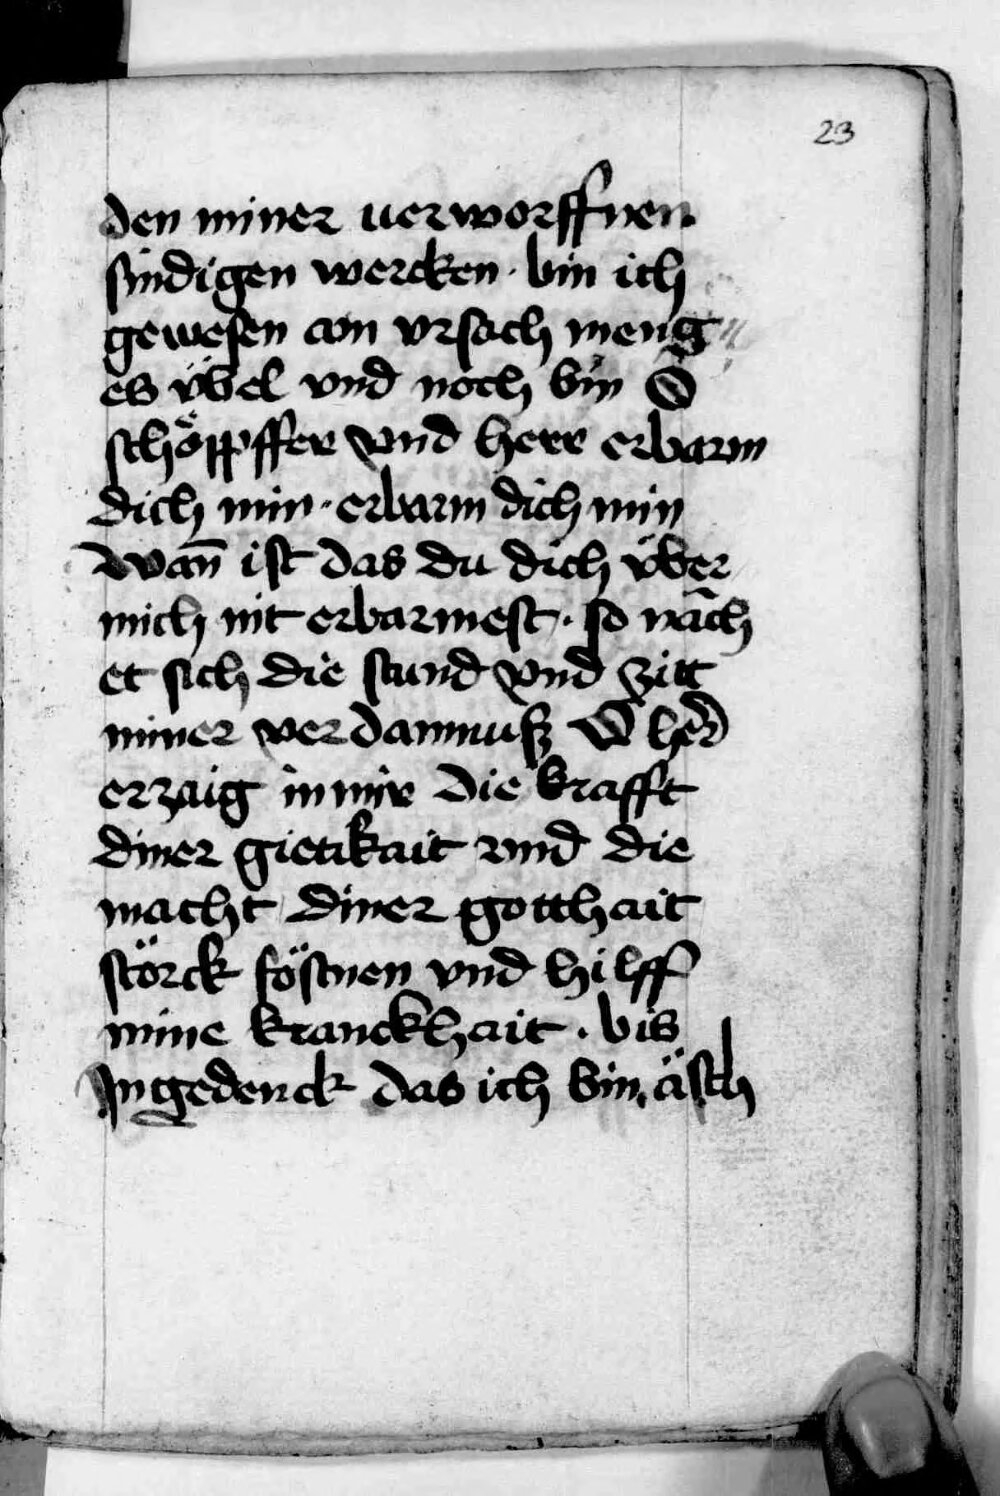 23
den miner uerworffnen
sündigen wercken · bin ich
gewesen ain vrsach meng
es übel vnd noch bin O
schöppffer vnd herr erbarm
dich min · erbarm dich min
wan̄ ist das du dich über
mich nit erbarmest · so nách
et sich die stund vnd zitt
miner verdamnuß O her
erzaig in mir die krafft
diner gietikait vnd die
macht diner gotthait
störck föstnen vnd hilff
mine kranckhait · bis
Ingedenck das ich bin äsch